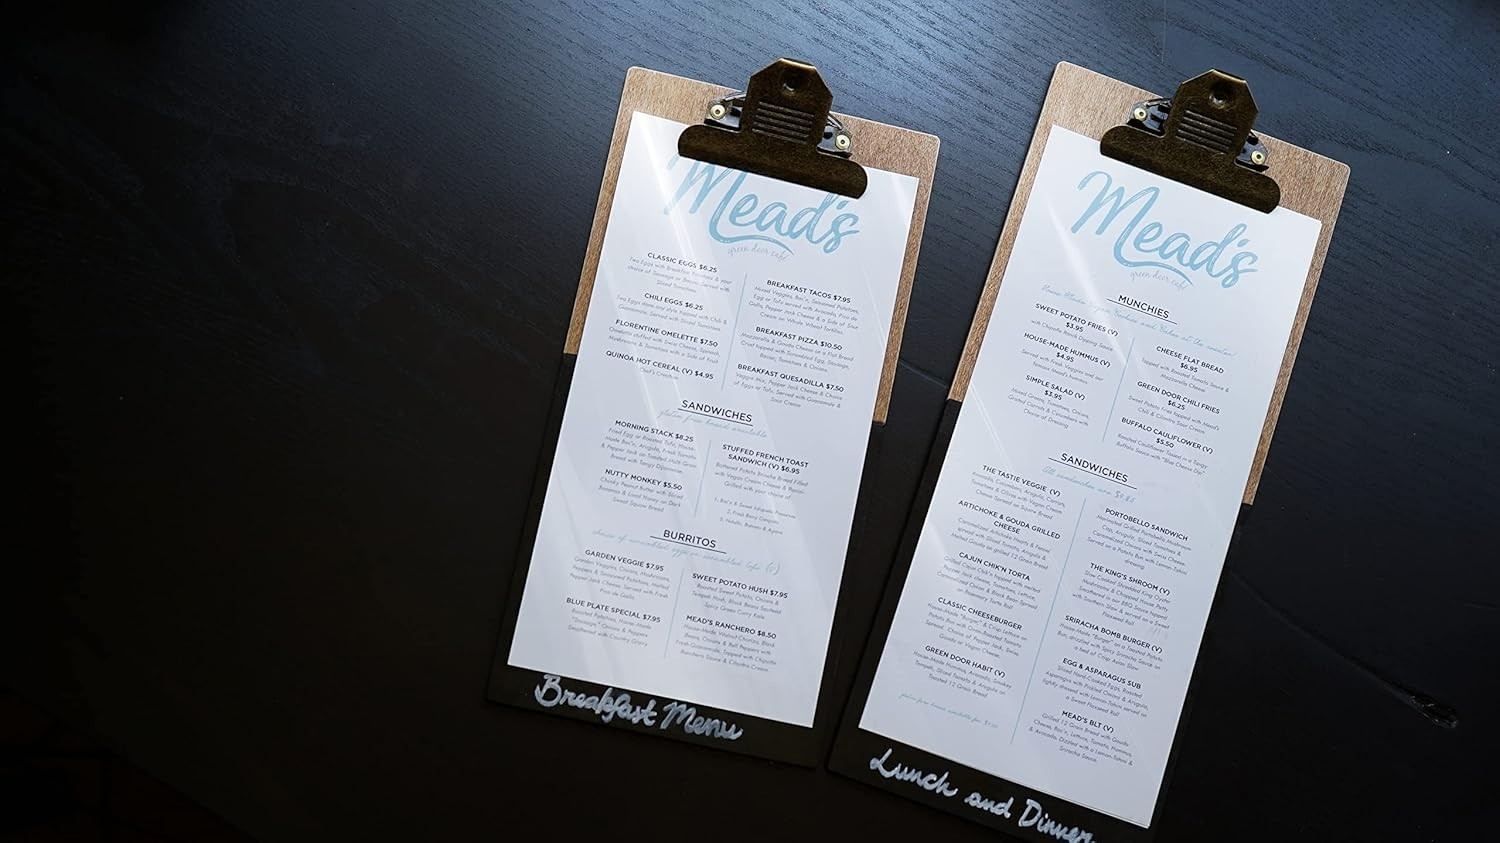 Mead's
green door café
CLASSIC EGGS $6.25
Two Eggs with Breakfast Potatoes & your
choice of Sausage or Bacon. Served with
Sliced Tomatoes
CHILI EGGS $6.25
Two Eggs done any style topped with Chili &
Guacamole, Served with Sliced Tomatoes
FLORENTINE OMELETTE $7.50
Omelette stuffed with Swiss Cheese, Spinach,
Mushrooms & Tomatoes with a Side of Fruit
QUINOA HOT CEREAL (V) $4.95
Chef's Creation
BREAKFAST TACOS $7.95
Mixed Veggies, Bac'n, Seasoned Potatoes,
Egg or Tofu served with Avocado, Pico de
Gallo, Pepper Jack Cheese & a Side of Sour
Cream on Whole Wheat Tortillas.
BREAKFAST PIZZA $10.50
Mozzarella & Gouda Cheese on a Flat Bread
Crust topped with Scrambled Egg, Sausage,
Bacon, Tomatoes & Onions.
BREAKFAST QUESADILLA $7.50
Veggie Mix, Pepper Jack Cheese & Choice
of Eggs or Tofu, Served with Guacamole &
Sour Cream
SANDWICHES
gluten free bread available
MORNING STACK $8.25
Fried Egg or Roasted Tofu, House-
Made Bac'n, Arugula, Fresh Tomato
& Pepper Jack on Toasted Multi Grain
Bread with Tangy Dijonnaise.
NUTTY MONKEY $5.50
Chunky Peanut Butter with Sliced
Bananas & Local Honey on Dark
Sweet Square Bread
STUFFED FRENCH TOAST
SANDWICH (V) $6.95
Battered Potato Brioche Bread Filled
with Vegan Cream Cheese &
Grilled with your choice of
1. Bac'n & Sweet Jalapeño
2. Fresh Berry Compote
3. Nutella, Banana & Agave
BURRITOS
choice of scrambled eggs or scrambled tofu (v)
GARDEN VEGGIE $7.95
Garden Veggies, Onions, Mushrooms,
Peppers & Seasoned Potatoes, Melted
Pepper Jack Cheese. Served with Fresh
Pico de Gallo
BLUE PLATE SPECIAL $7.95
Roasted Potatoes, House-Made
"Sausage", Onions & Peppers
Smothered with Country Gravy
SWEET POTATO HUSH $7.95
Roasted Sweet Potato, Onions &
Tempeh Hash, Black Beans Sautéed
Spicy Green Curry Kale
MEAD'S RANCHERO $8.50
House-Made Walnut Chorizo, Black
Beans, Onions & Bell Peppers with
Fresh Guacamole, Topped with Chipotle
Ranchero Sauce & Cilantro Cream
Breakfast Menu
Mead's
green door café
MUNCHIES
SWEET POTATO FRIES (V)
$3.95
with Chipotle Ranch Dipping Sauce
HOUSE-MADE HUMMUS (V)
$4.95
Served with Fresh Veggies and our
Hummus
SIMPLE SALAD (V)
$3.95
Mixed Greens, Tomatoes, Onions,
Grated Carrots & Cucumbers with
Choice of Dressing
CHEESE FLAT BREAD
$6.95
Topped with Roasted Tomato Sauce &
Mozzarella Cheese
GREEN DOOR CHILI FRIES
$6.25
Sweet Potato Fries topped with Mead's
Chili & Cilantro Sour Cream
BUFFALO CAULIFLOWER (V)
$5.50
Roasted Cauliflower Tossed in a Tangy
Buffalo Sauce with "Blue Cheese Dip"
SANDWICHES
All sandwiches are
THE TASTIE VEGGIE (V)
Avocado, Cucumbers, Arugula, Carrots,
Tomatoes & Olives with Vegan Cream
Cheese Spread on Square Bread
ARTICHOKE & GOUDA GRILLED
CHEESE
Caramelized Artichoke Hearts & Fennel
spread with Sliced Tomato, Arugula &
Melted Gouda on grilled 12 Grain Bread
CAJUN CHIK'N TORTA
Grilled Cajun Chik'n topped with melted
Pepper Jack cheese, Tomatoes, Onion,
Caramelized Onion & Black Bean Spread
on Rosemary Torta Roll
CLASSIC CHEESEBURGER
House-Made "Burger" & Crisp Lettuce on
Potato Bun with Oven-Roasted Tomato
Spread. Choice of Pepper Jack, Swiss,
Gouda or Vegan Cheese.
GREEN DOOR HABIT (V)
House-Made Hummus, Avocado, Smokey
Tempeh, Sliced Tomato & Arugula on
Toasted 12 Grain Bread
gluten free bread available for
PORTOBELLO SANDWICH
Marinated Grilled Portobello Mushroom
Cap, Arugula, Sliced Tomatoes &
Caramelized Onions with Swiss Cheese.
Served on a Potato Bun with Lemon-Tahini
dressing
THE KING'S SHROOM (V)
Slow Cooked Shredded King Oyster
Mushrooms & Chopped House Patty
Smothered in our BBQ Sauce topped
with Southern Slaw & served on a Sweet
Flaxseed Roll
SRIRACHA BOMB BURGER (V)
House-Made "Burger" on a Toasted Potato
Bun, drizzled with Spicy Sriracha Sauce on
a bed of Crisp Asian Slaw
EGG & ASPARAGUS SUB
Sliced Hard-Cooked Eggs, Roasted
Asparagus with Pickled Onions & Arugula,
lightly dressed with Lemon-Tahini served on
a Sweet Flaxseed Roll
MEAD'S BLT (V)
Grilled 12 Grain Bread with Gouda
Cheese, Bac'n, Lettuce, Tomato, Hummus,
& Avocado, Dizzled with a Lemon-Tahini &
Sriracha Sauce.
Lunch and Dinner